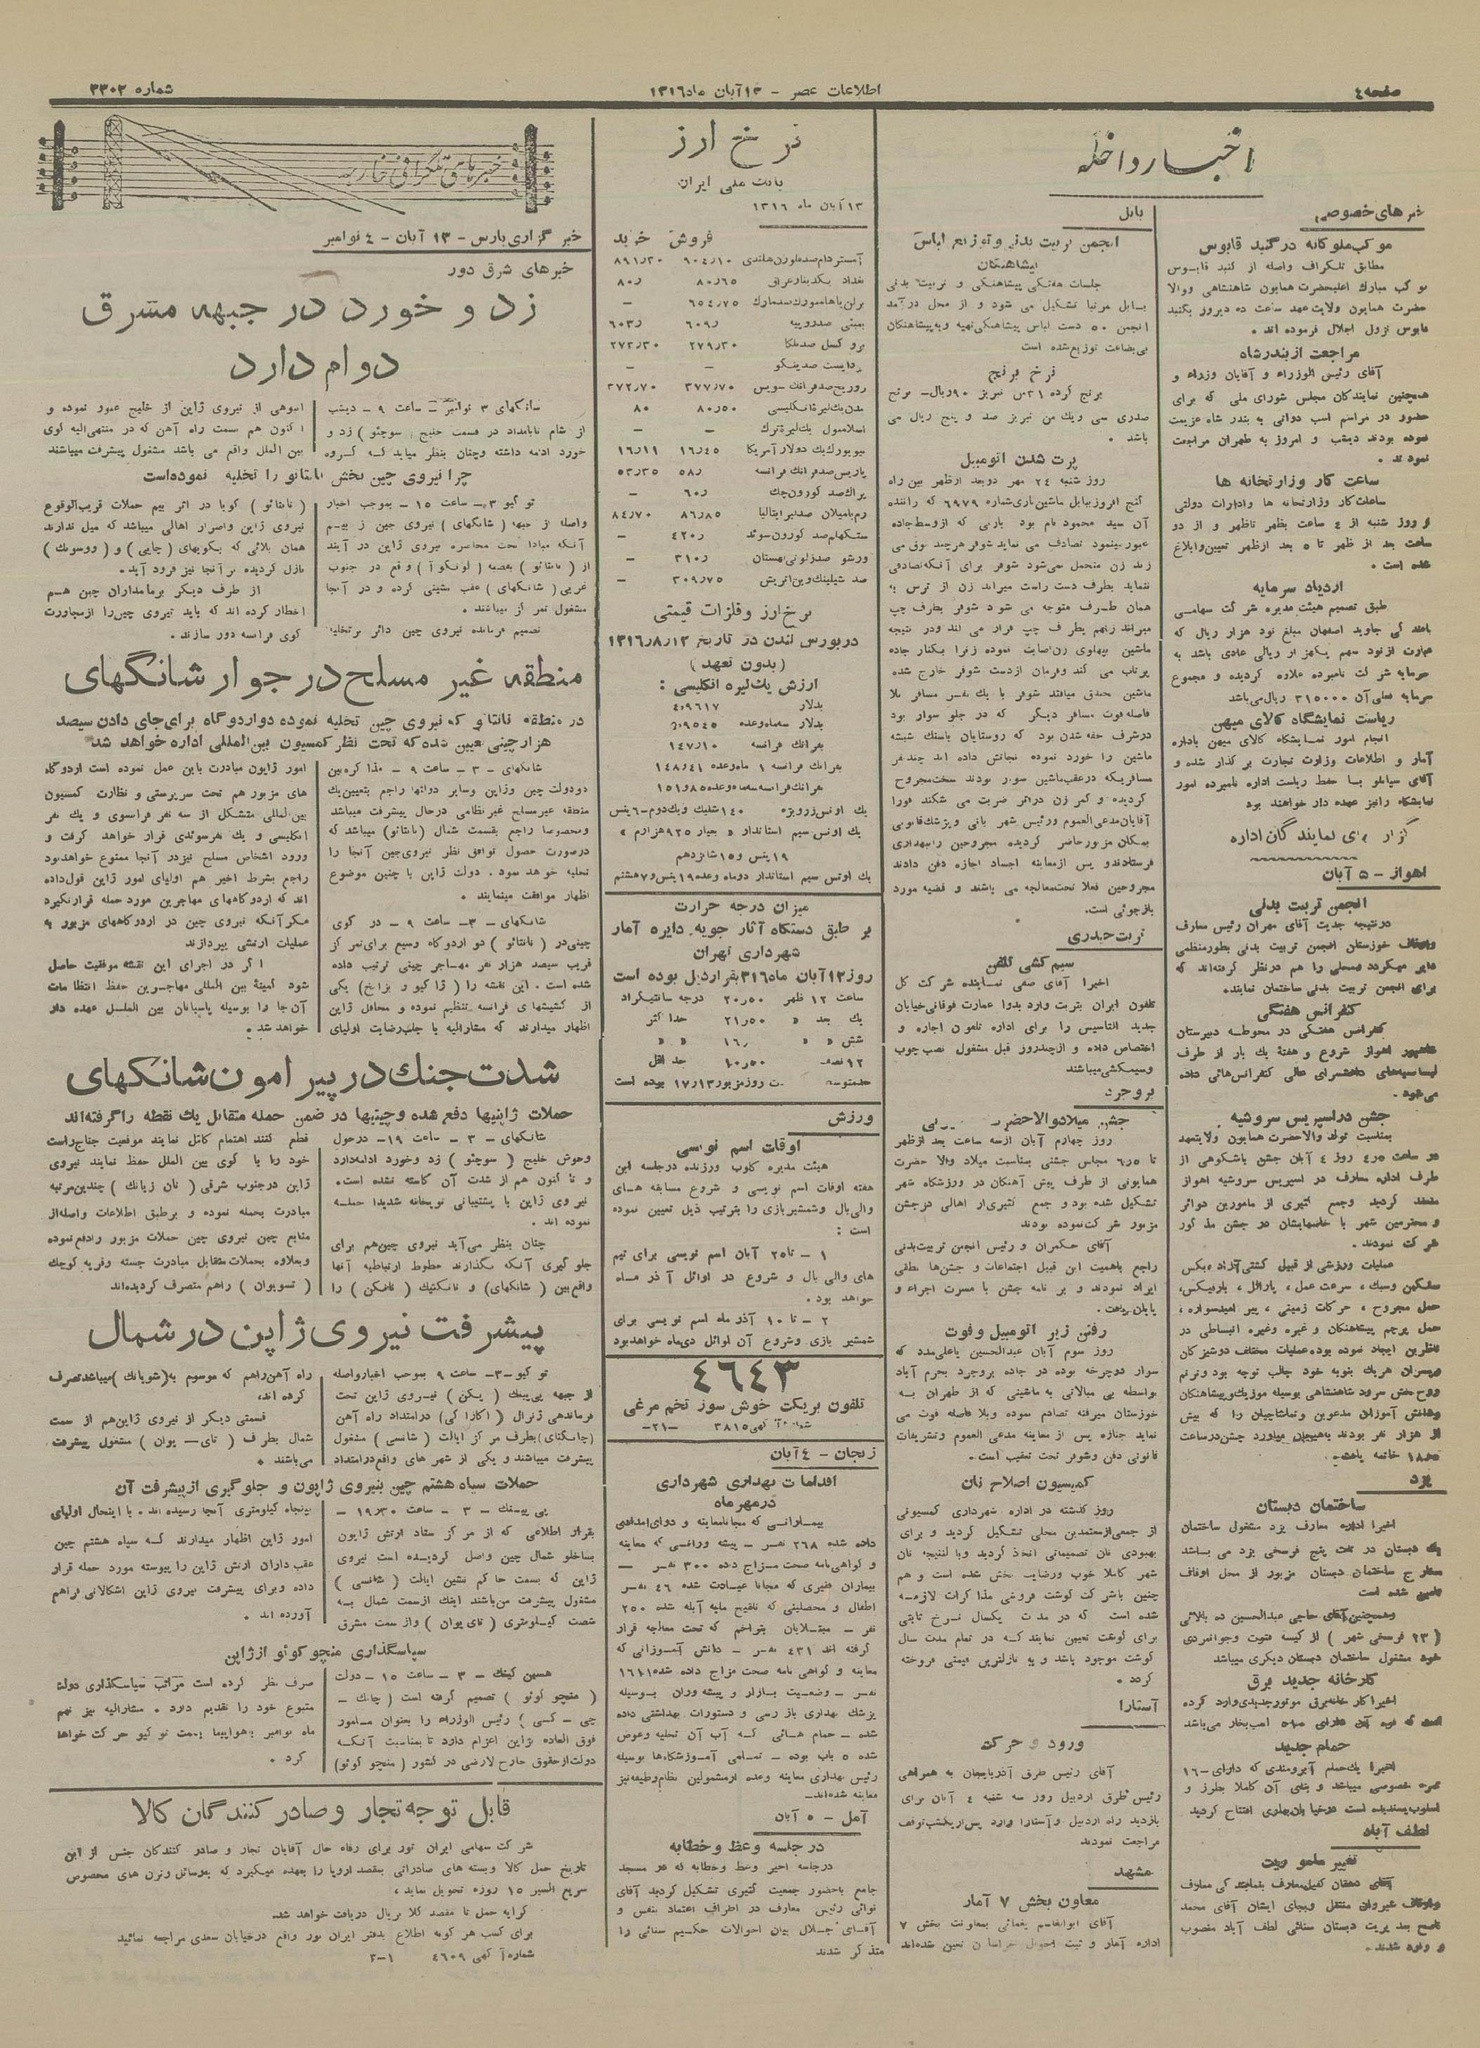 صفحه ٤
اطلاعات عصر - ١٣ آبان ماه ١٣١٦
شماره ٣٣٠٢
اخبار داخله
خبرهای خصوصی
موکب ملوکانه در گنبد قابوس
مطابق تلگراف واصله از گنبد قابوس
موکب مبارک اعلیحضرت همایون شاهنشاهی و والا
حضرت همایون ولایت عهد ساعت ده دیروز بگنبد
قابوس نزول اجلال فرموده اند .
مراجعت از بندرشاه
آقای رئیس الوزراء و آقایان وزراء و
همچنین نمایندگان مجلس شورای ملی که برای
حضور در مراسم اسب دوانی به بندر شاه عزیمت
نموده بودند دیشب و امروز به طهران مراجعت
نمودند .
ساعت کار وزارتخانه ها
ساعات کار وزارتخانه ها و ادارات دولتی
از روز شنبه از ٤ ساعت بظهر تا ظهر و از دو
ساعت بعد از ظهر تا ٥ بعد از ظهر تعیین و ابلاغ
شده است .
ازدیاد سرمایه
طبق تصمیم هیئت مدیره شرکت سهامی
جاوید اصفهان مبلغ نود هزار ریال که
عبارت از نود سهم یکهزار ریالی عادی باشد به
سرمایه شرکت نامبرده علاوه گردیده و مجموع
سرمایه فعلی آن ٣١٥٠٠٠ ریال می باشد
ریاست نمایشگاه کالای میهن
انجام امور نمایشگاه کالای میهن باداره
آمار و اطلاعات وزارت تجارت بر گذار شده و
آقای با حفظ ریاست اداره نامبرده امور
نمایشگاه را نیز عهده دار خواهند بود
نمایندگان اداره
اهواز - ٥ آبان
انجمن تربیت بدنی
در نتیجه جدیت آقای مهران رئیس معارف
و اوقاف خوزستان انجمن تربیت بدنی بطور منظمی
را هم در نظر گرفته اند که
برای انجمن تربیت بدنی ساختمان نمایند .
کنفرانس هفتگی
کنفرانس هفتگی در محوطه دبیرستان
شاهپور اهواز شروع و هفته یک بار از طرف
لیسانسیه های دانشسرای عالی کنفرانس هائی داده
می شود .
جشن در اسپریس سروشیه
بمناسبت تولد والاحضرت همایون ولایتعهد
روز ٤ آبان جشن باشکوهی از
طرف اداره معارف در اسپریس سروشیه اهواز
منعقد گردید و جمع کثیری از مامورین دوائر
و محترمین شهر با خانمهایشان در جشن مذکور
شرکت نمودند .
عملیات ورزشی از قبیل کشتی آزاد بکس
سنگین و سبک ، سرعت عمل ، پارالل ، بارفیکس ،
حمل مجروح ، حرکات زمینی ،
حمل پرچم پیشاهنگان و غیره و غیره انبساطی در
ناظرین ایجاد نموده بود . عملیات مختلف دوشیزگان
و پسران هر یک بنوبه خود جالب توجه بود و ترنم
روح بخش سرود شاهنشاهی بوسیله موزیک و پیشاهنگان
و دانش آموزان مدعوین و تماشاچیان را که بیش
از هزار نفر بودند بهیجان میآورد جشن در ساعت
خاتمه یافت .
یزد
ساختمان دبستان
اخیراً اداره معارف یزد مشغول ساختمان
یک دبستان در تفت پنج فرسخی یزد می باشد
مخارج ساختمان دبستان مزبور از محل اوقاف
تأمین شده است
و همچنین آقای حاجی عبدالحسین ده بالائی
( ٢٣ فرسخی شهر ) از کیسه فتوت و جوانمردی
خود مشغول ساختمان دبستان دیگری میباشد
کارخانه جدید برق
اخیراً کارخانه برق موتور جدیدی وارد کرده
است که اسب بخار می باشد
حمام جدید
اخیراً یک حمام آبرومندی که دارای ١٦
نمره خصوصی میباشد و بنای آن کاملا بطرز و
اسلوب پسندیده است در خیابان پهلوی افتتاح گردید
لطف آباد
تغییر ماموریت
آقای دهقان کفیل معارف بنمایندگی معارف
منتقل و بجای ایشان آقای محمد
ناصح بمدیریت دبستان سنائی لطف آباد منصوب
و وارد شدند .
بابل
انجمن تربیت بدنی و توزیع لباس
پیشاهنگان
جلسات هفتگی پیشاهنگی و تربیت بدنی
بابل مرتباً تشکیل می شود و از محل درآمد
انجمن ٥٠ دست لباس پیشاهنگی تهیه و به پیشاهنگان
بی بضاعت توزیع شده است
نرخ برنج
برنج گرده ٢١ من تبریز ٩٠ ریال - برنج
صدری سی و یک من تبریز صد و پنج ریال می
باشد .
پرت شدن اتومبیل
روز شنبه ٢٤ مهر دو بعد از ظهر بین راه
گنج افروز ببابل ماشین باری شماره ٦٩٧٩ که راننده
آن سید محمود نام بود بازنی که از وسط جاده
عبور مینمود تصادف می نماید شوفر هر چند بوق می
زند زن متحمل نمی شود شوفر برای آنکه تصادفی
ننماید بطرف دست راست میراند زن از ترس به
همان طرف متوجه می شود شوفر بطرف چپ
میراند زن هم بطرف چپ فرار می کند و در نتیجه
ماشین بپهلوی زن اصابت نموده زن را بکنار جاده
پرتاب می کند و فرمان از دست شوفر خارج شده
ماشین بخندق میافتد شوفر با یک نفر مسافر بلا
فاصله فوت مسافر دیگر که در جلو سوار بود
در شرف خفه شدن بود که روستائیان باسنک شیشه
ماشین را خورد نموده نجاتش داده اند چند نفر
مسافریکه در عقب ماشین سوار بودند سخت مجروح
گردیده و کمر زن در اثر ضربت می شکند فوراً
آقایان مدعی العموم و رئیس شهربانی و پزشک قانونی
بمکان مزبور حاضر گردیده مجروحین را ببهداری
فرستادند و پس از معاینه اجساد اجازه دفن دادند
مجروحین فعلا تحت معالجه می باشند و قضیه مورد
بازجوئی است .
تربت حیدری
سیم کشی تلفن
اخیراً آقای صفی نماینده شرکت کل
تلفون ایران بتربت وارد بدواً عمارت فوقانی خیابان
جدید التاسیس را برای اداره تلفون اجاره و
اختصاص داده و از چند روز قبل مشغول نصب چوب
و سیمکشی میباشند
بروجرد
روز چهارم آبان از سه ساعت بعد از ظهر
تا مجلس جشنی بمناسبت میلاد والا حضرت
همایونی از طرف پیش آهنگان در ورزشگاه شهر
تشکیل شده بود و جمع کثیری از اهالی در جشن
مزبور شرکت نموده بودند
آقای حکمران و رئیس انجمن تربیت بدنی
راجع باهمیت این قبیل اجتماعات و جشن ها نطقی
ایراد نمودند و برنامه جشن با مسرت اجراء و
پایان یافت .
رفتن زیر اتومبیل و فوت
روز سوم آبان عبدالحسین یا علی مدد که
سوار دوچرخه بوده در جاده بروجرد بخرم آباد
بواسطه بی مبالاتی به ماشینی که از طهران به
خوزستان میرفته تصادم نموده و بلا فاصله فوت می
نماید جنازه پس از معاینه مدعی العموم و تشریفات
قانونی دفن و شوفر تحت تعقیب است .
کمیسیون اصلاح نان
روز گذشته در اداره شهرداری کمیسیونی
از جمعی از معتمدین محلی تشکیل گردید و برای
بهبودی نان تصمیماتی اتخاذ گردید و بالنتیجه نان
شهر کاملا خوب و رضایت بخش شده است و هم
چنین باشرکت گوشت فروشی مذاکرات لازمه
شده است که در مدت یکسال نرخ ثابتی
برای گوشت تعیین نمایند که در تمام مدت سال
گوشت موجود باشد و به نازلترین قیمتی فروخته
گردد .
آستارا
ورود و حرکت
آقای رئیس طرق آذربایجان به همراهی
رئیس طرق اردبیل روز سه شنبه ٤ آبان برای
بازدید راه اردبیل و آستارا وارد پس از یکشب توقف
مراجعت نمودند
مشهد
معاون بخش ٧ آمار
آقای ابوالقاسم یغمائی بمعاونت بخش ٧
اداره آمار و ثبت احوال خراسان تعیین شده اند
نرخ ارز
بانک ملی ایران
١٣ آبان ماه ١٣١٦
فروش خرید
آمستردام صد فلورن هلندی ٩٠٤٫١٠ ٨٩١٫٣٠
بغداد یکدینار عراق ٨٠٫٦٥ ٨٠٫
برلن یا هامبورک صد مارک ٦٥٤٫٧٥ -
بمبئی صد روپیه ٦٠٩٫ ٦٠٣٫
بروکسل صد بلگا ٢٧٩٫٣٠ ٢٧٣٫٣٠
بوداپست صد پنگو - -
زوریخ صد فرانک سویس ٣٧٧٫٧٠ ٣٧٢٫٧٠
لندن یک لیره انگلیسی ٨٠٫٥٠ ٨٠
اسلامبول یک لیره ترک - -
نیویورک یک دولار آمریکا ١٦٫٤٥ ١٦٫١١
پاریس صد فرانک فرانسه ٥٨٫ ٥٣٫٣٥
پراک صد کورون چک ٦٠٫ -
رم یا میلان صد لیر ایتالیا ٨٦٫٨٥ ٨٤٫٧٠
ستکهلم صد کورون سوئد ٤٢٠٫ -
ورشو صد زلوتی لهستان ٣١٠٫ -
صد شیلینک وین اتریش ٣٠٩٫٧٥ -
نرخ ارز و فلزات قیمتی
در بورس لندن در تاریخ ١٣١٦٫٨٫١٢
( بدون تعهد )
ارزش یک لیره انگلیسی :
بدلار ٤٫٩٦١٧
بدلار سه ماه وعده
بفرانک فرانسه ١٤٧٫١٠
بفرانک فرانسه ١ ماه وعده ١٤٨٫٤١
بفرانک فرانسه سه ماه وعده ١٥١٫٨٥
یک اونس زر ویژه ١٤٠ شلیک و یک دوم - ٦ پنس
یک اونس سیم استاندار « بعیار ٩٢٥ هزارم »
١٩ پنس و ١٥ شانزدهم
یک اونس سیم استاندار دو ماه وعده ١٩ پنس و ٧ هشتم
میزان درجه حرارت
بر طبق دستگاه آثار جویه . دایره آمار
شهرداری تهران
روز ١٢ آبان ماه ٣١٦ بقرار ذیل بوده است
ساعت ١٢ ظهر ٢٠٫٥٠ درجه سانتیگراد
یک بعد « ٢١٫٥٠ حداکثر
شش « « ١٦٫ « «
١٢ نصف ١٠٫٥٠ حداقل
روز مزبور ١٧٫١٣ بوده است
ورزش
اوقات اسم نویسی
هیئت مدیره کلوپ ورزنده در جلسه این
هفته اوقات اسم نویسی و شروع مسابقه های
والی بال و شمشیربازی را بترتیب ذیل تعیین نموده
است :
١ - تا ٢٥ آبان اسم نویسی برای تیم
های والی بال و شروع در اوائل آذر ماه
خواهد بود .
٢ - تا ١٠ آذر ماه اسم نویسی برای
شمشیر بازی و شروع آن اوائل دی ماه خواهد بود
٤٦٤٣
تلفون بریکت خوش سوز تخم مرغی
شماره آگهی ٣٨١٥ -٢١-
زنجان - ٤ آبان
اقدامات بهداری شهرداری
در مهر ماه
بیمارانی که مجاناً معاینه و دوای امدادی
داده شده ٢٦٨ نفر - پیشه ورانی که معاینه
و گواهی نامه صحت مزاج داده ٣٠٠ نفر -
بیماران فقیری که مجاناً عیادت شده ٤٦ نفر
اطفال و محصلینی که تلقیح مایه آبله شده ٢٥٠
نفر - مبتلایان بتراخم که تحت معالجه قرار
گرفته اند ٤٣١ نفر - دانش آموزانی که
معاینه و گواهی نامه صحت مزاج داده شده ١٦١١
نفر - وضعیت بازار و پیشه وران بوسیله
پزشک بهداری بازرسی و دستورات بهداشتی داده
شده - حمام هائی که آب آن تخلیه و عوض
شده ٥ باب بوده - تمامی آموزشگاه ها بوسیله
رئیس بهداری معاینه و عده از مشمولین نظام وظیفه نیز
معاینه شده اند -
آمل - ٥ آبان
در جلسه وعظ و خطابه
در جلسه اخیر وعظ و خطابه که در مسجد
جامع باحضور جمعیت کثیری تشکیل گردید آقای
نوائی رئیس معارف در اطراف اعتماد بنفس و
آقای جلال بیان احوالات حکیم سنائی را
متذکر شدند
خبرهای تلگرافی خارجه
خبر گزاری پارس - ١٣ آبان - ٤ نوامبر
خبرهای شرق دور
زد و خورد در جبهه مشرق
دوام دارد
شانگهای ٣ نوامبر - ساعت ٩ - دیشب
از شام تا بامداد در قسمت خلیج ( سوچئو ) زد و
خورد ادامه داشته و چنان بنظر میاید که گروه
انبوهی از نیروی ژاپن از خلیج عبور نموده و
اکنون هم سمت راه آهن که در منتهی الیه کوی
بین الملل واقع می باشد مشغول پیشرفت میباشند
چرا نیروی چین بخش نانتائو را تخلیه نموده است
توکیو ٣ - ساعت ١٥ - بموجب اخبار
واصله از جبهه ( شانگهای ) نیروی چین از بیم
آنکه مبادا تحت محاصره نیروی ژاپن در آیند
از ( نانتائو ) بقصبه ( لونکوآ ) واقع در جنوب
غربی ( شانگهای ) عقب نشینی کرده و در آنجا
مشغول تمرکز میباشند .
تصمیم فرمانده نیروی چین دائر بر تخلیه
( نانتائو ) گویا در اثر بیم حملات قریب الوقوع
نیروی ژاپن و اصرار اهالی میباشد که میل ندارند
همان بلائی که بکویهای ( چاپی ) و ( ووسونک )
نازل گردیده بر آنجا نیز فرود آید .
از طرف دیگر برمامداران چین هم
اخطار کرده اند که باید نیروی چین را از مجاورت
کوی فرانسه دور سازند .
منطقه غیر مسلح در جوار شانگهای
در منطقه نانتاو که نیروی چین تخلیه نموده دو اردوگاه برای جای دادن سیصد
هزار چینی تعیین شده که تحت نظر کمسیون بین المللی اداره خواهد شد
شانگهای - ٣ - ساعت ٩ - مذاکره بین
دو دولت چین و ژاپن و سایر دولتها راجع بتعیین یک
منطقه غیر مسلح غیر نظامی در حال پیشرفت میباشد
و مخصوصاً راجع بقسمت شمال ( نانتائو ) میباشد که
در صورت حصول توافق نظر نیروی چین آنجا را
تخلیه خواهد نمود . دولت ژاپن با چنین موضوع
اظهار موافقت مینمایند .
شانگهای - ٣ - ساعت ٩ - در کوی
چینی در ( نانتائو ) دو اردوگاه وسیع برای تمرکز
قریب سیصد هزار نفر مهاجر چینی ترتیب داده
شده است . این نقشه را ( ژاکیو و بزانچ ) یکی
از کشیشهای فرانسه تنظیم نموده و محافل ژاپن
اظهار میدارند که مشارالیه با جلب رضایت اولیای
امور ژاپون مبادرت باین عمل نموده است اردوگاه
های مزبور هم تحت سرپرستی و نظارت کمسیون
بین المللی متشکل از سه نفر فرانسوی و یک نفر
انگلیسی و یک نفر سوئدی قرار خواهد گرفت و
ورود اشخاص مسلح نیز در آنجا ممنوع خواهد بود
راجع بشرط اخیر هم اولیای امور ژاپن قول داده
اند که اردوگاههای مهاجرین مورد حمله قرار نگیرد
مگر آنکه نیروی چین در اردوگاههای مزبور به
عملیات ارتشی بپردازند
اگر در اجرای این نقشه موفقیت حاصل
شود کمیته بین المللی مهاجرین حفظ انتظامات
آن جا را بوسیله پاسبانان بین الملل عهده دار
خواهد شد .
شدت جنک در پیرامون شانگهای
حملات ژاپنیها دفع شده و چینیها در ضمن حمله متقابل یک نقطه را گرفته اند
شانگهای - ٣ - ساعت ١٩ - در حول
و حوش خلیج ( سوچئو ) زد و خورد ادامه دارد
و تا کنون هم از شدت آن کاسته نشده است .
نیروی ژاپن با پشتیبانی توپخانه شدیداً حمله
نموده اند .
چنان بنظر می آید نیروی چین هم برای
جلوگیری آنکه نگذارند خطوط ارتباطیه آنها
واقع بین ( شانگهای ) و نانکنیک ( نانکن ) را
قطع کنند اهتمام کامل نمایند موقعیت جناح راست
خود را با کوی بین الملل حفظ نمایند نیروی
ژاپن در جنوب شرقی ( نان زیانک ) چندین مرتبه
مبادرت بحمله نموده و بر طبق اطلاعات واصله از
منابع چین نیروی چین حملات مزبور را دفع نموده
و بعلاوه بحملات متقابل مبادرت جسته و قریه کوچک
( تسوبوان ) را هم متصرف گردیده اند
پیشرفت نیروی ژاپن در شمال
توکیو - ٣ - ساعت ٩ بموجب اخبار واصله
از جبهه پی پینک ( پکن ) نیروی ژاپن تحت
فرماندهی ژنرال ( اکازا کی ) در امتداد راه آهن
( چانکتای ) بطرف مرکز ایالت ( شانسی ) مشغول
پیشرفت میباشند و یکی از شهر های واقع در امتداد
راه آهن را هم که موسوم به ( شویانک ) میباشد تصرف
کرده اند ،
قسمتی دیگر از نیروی ژاپن هم از سمت
شمال بطرف ( تای - یوان ) مشغول پیشرفت
می باشند .
حملات سپاه هشتم چین بنیروی ژاپون و جلوگیری از پیشرفت آن
پی پینک - ٣ - ساعت ١٩٫٣٠ -
بقرار اطلاعی که از مرکز ستاد ارتش ژاپون
بساخلو شمال چین واصل گردیده است نیروی
ژاپن که بسمت حاکم نشین ایالت ( شانسی )
مشغول پیشرفت می باشند اینک از سمت شمال به
شصت کیلومتری ( تای یوان ) و از سمت مشرق
پنجاه کیلومتری آنجا رسیده اند . با اینحال اولیای
امور ژاپن اظهار میدارند که سپاه هشتم چین
عقب داران ارتش ژاپن را پیوسته مورد حمله قرار
داده و برای پیشرفت نیروی ژاپن اشکالاتی فراهم
آورده اند .
سپاسگذاری منچوکوئو از ژاپن
هسین کینک - ٣ - ساعت ١٥ - دولت
( منچو کوئو ) تصمیم گرفته است ( چانک -
چی - کسی ) رئیس الوزراء را بعنوان مامور
فوق العاده بژاپن اعزام دارد تا بمناسبت آنکه
دولت از حقوق خارج الارضی در کشور ( منچو کوئو )
صرف نظر کرده است مراتب سپاسگذاری دولت
متبوع خود را تقدیم دارد . مشارالیه نیز نهم
ماه نوامبر باهواپیما بسمت توکیو حرکت خواهد
کرد .
قابل توجه تجار و صادر کنندگان کالا
شرکت سهامی ایران تور برای رفاه حال آقایان تجار و صادر کنندگان جنس از این
تاریخ حمل کالا و بسته های صادراتی بمقصد اروپا را بعهده میگیرد که بوسائل و ترن های مخصوص
سریع السیر ١٥ روزه تحویل نماید ،
کرایه حمل تا مقصد کلا بریال دریافت خواهد شد .
برای کسب هر گونه اطلاع بدفتر ایران تور واقع در خیابان سعدی مراجعه نمائید
شماره آگهی ٤٦٠٩ ٣-١